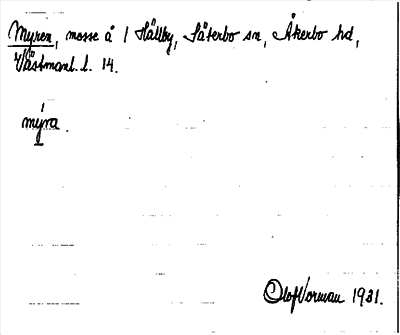 Myren, mosse å 1 Hällby, Säterbo sn, Åkerbo hd,
Västmanl. l. 14.
myra.
Olof Vorman 1931.